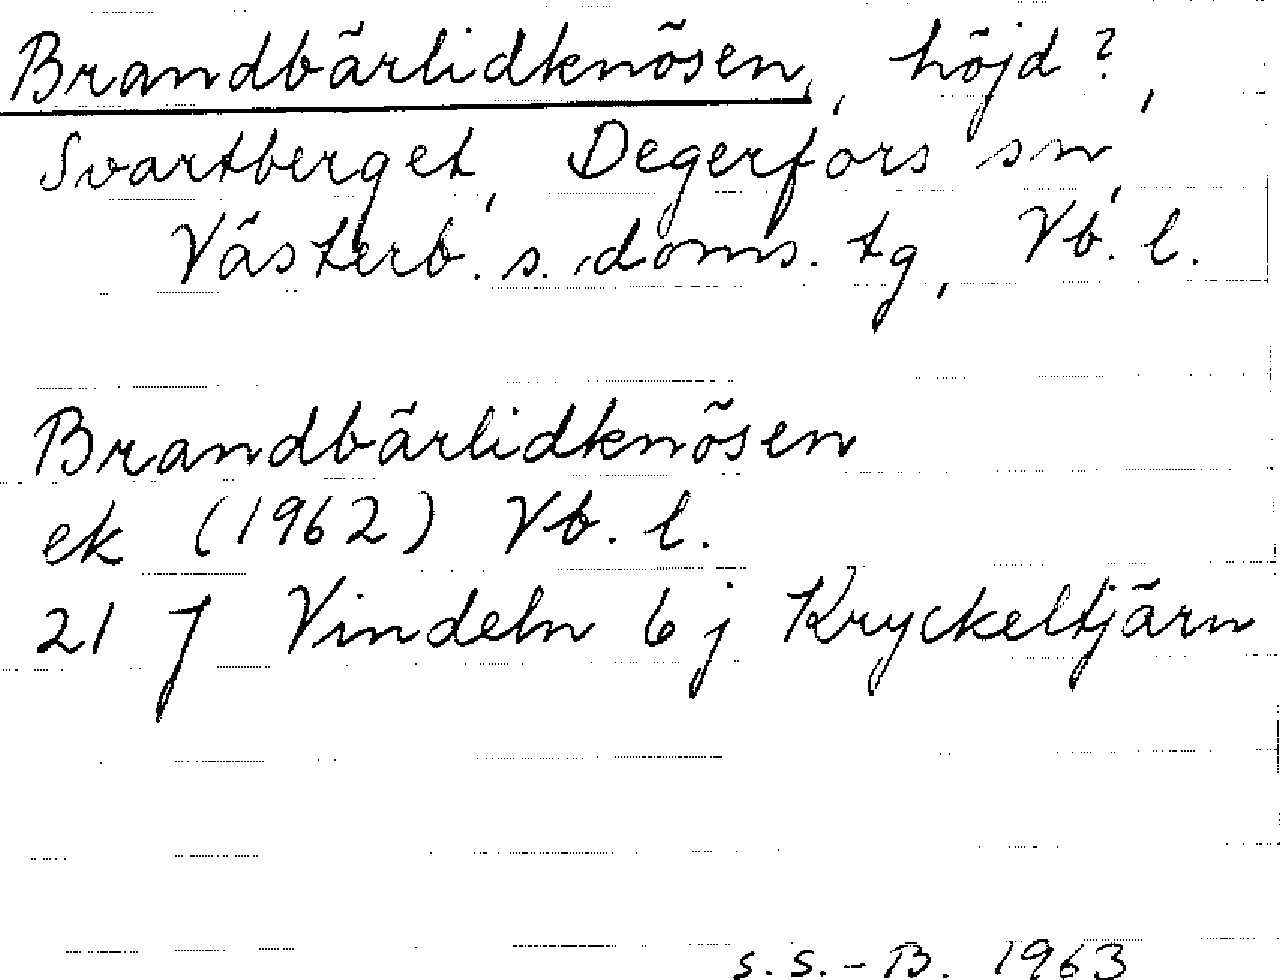 Brandbärlidknösen, höjd?,
Svartberget, Degerfors sn,
Västerb. s. doms. tg, Vb. l.
Brandbärlidknösen
ek (1962) Vb. l.
21 J Vindeln 6 j Kryckeltjärn
S.S.-B. 1963